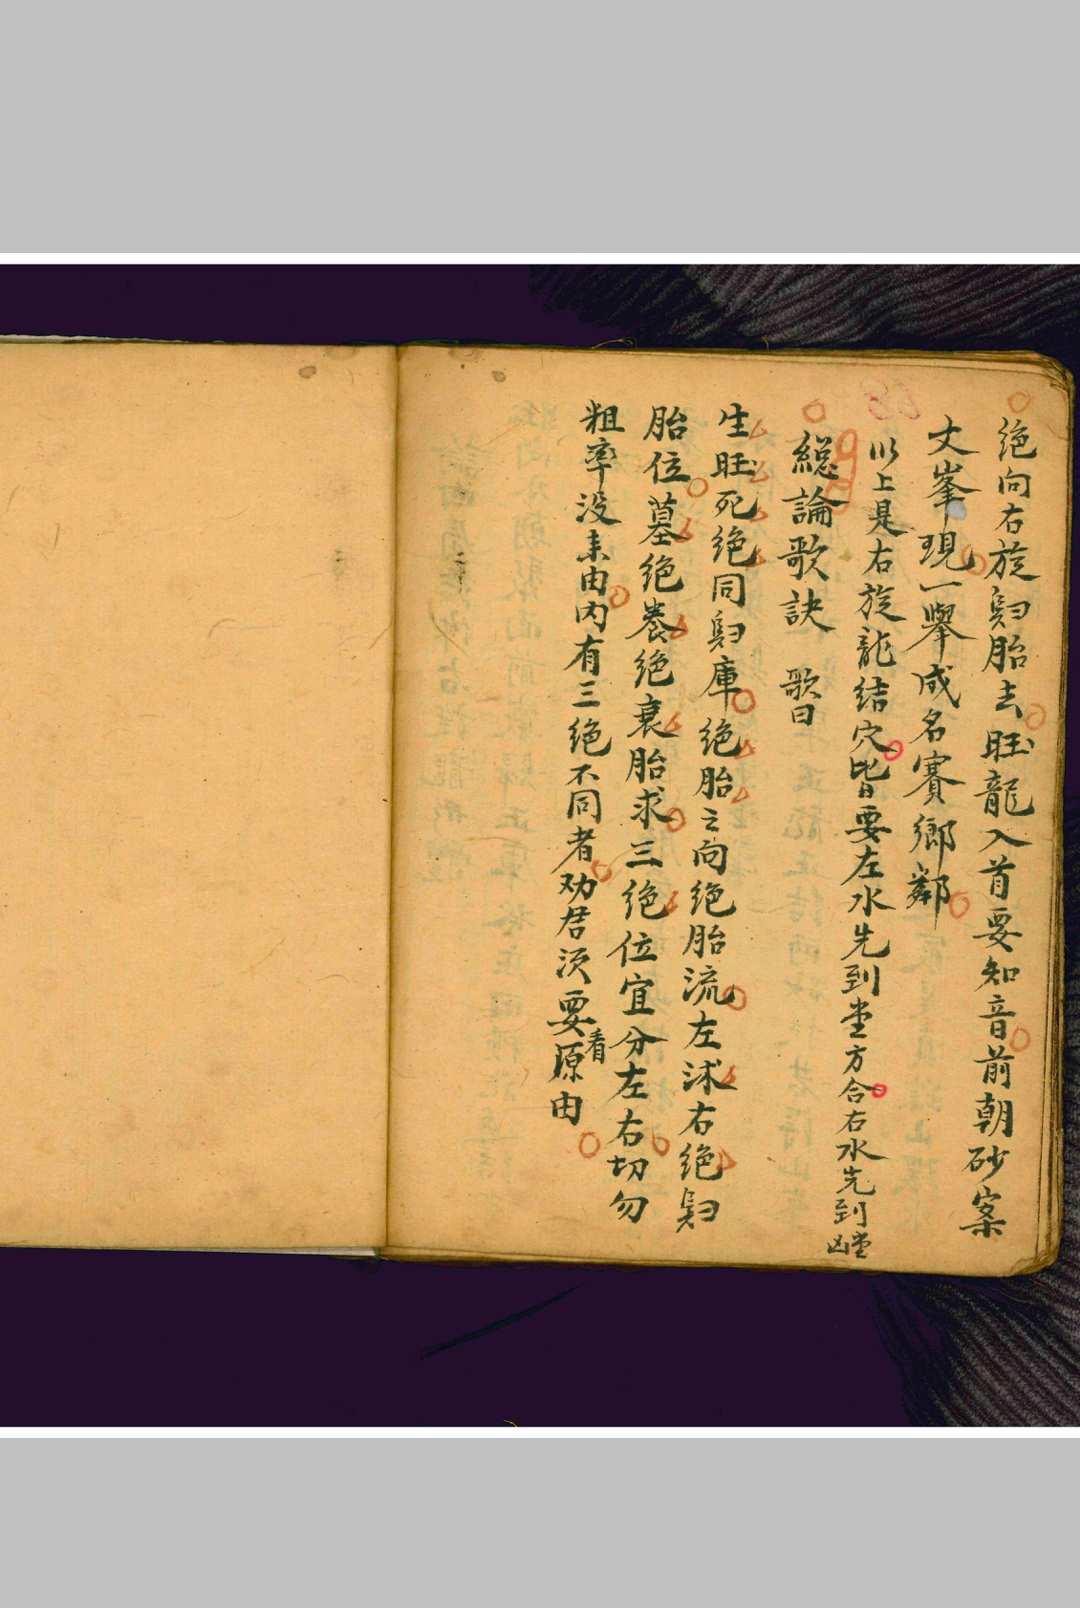 绝向右旋歸胎去旺龍入首要知音前朝砂案
文峯現一舉成名賽鄉鄰
以上是右旋龍结穴皆要左水先到堂方合右水先到堂凶
総論歌訣 歌曰
生旺死绝同歸庫绝胎之向绝胎流左球右绝歸
胎位墓绝養绝衰胎求三绝位宜分左右切勿
粗率没来由内有三绝不同者劝君须要看原由